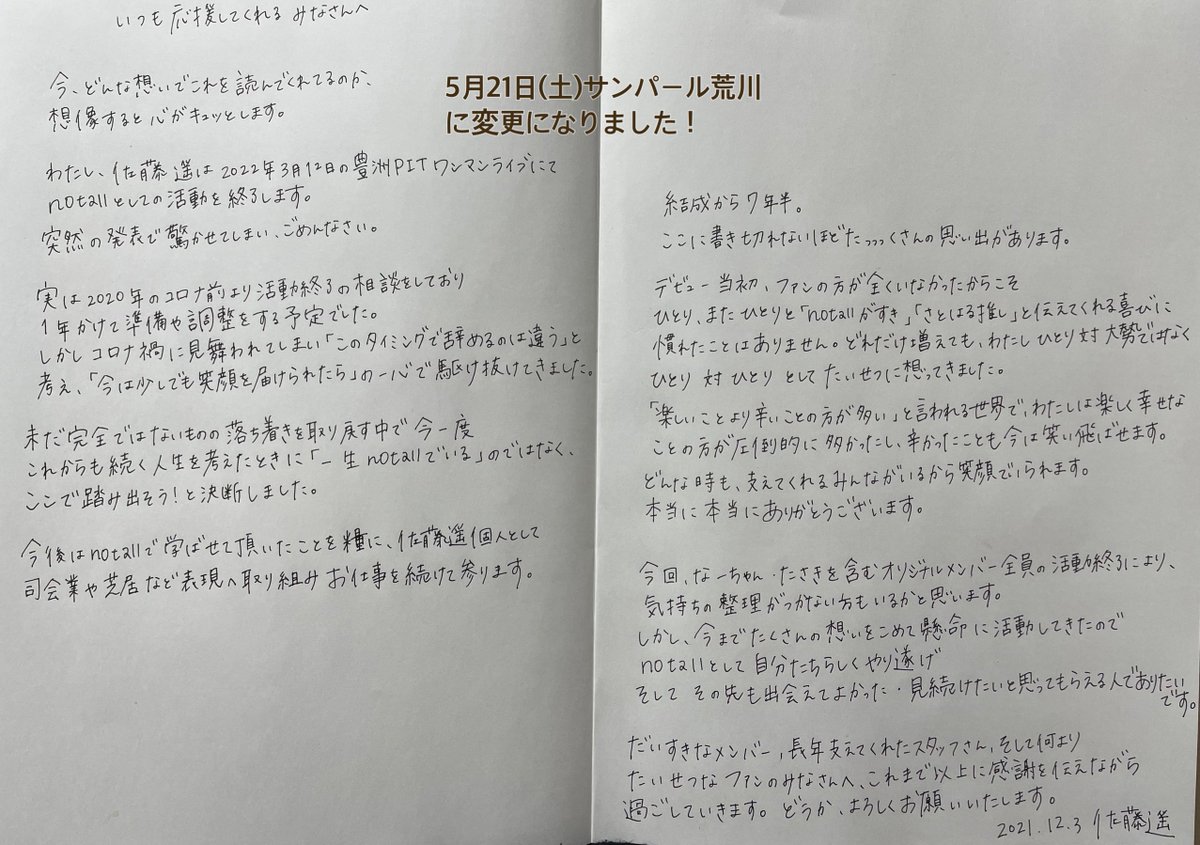 いつも応援してくれる みなさんへ
今、どんな想いでこれを読んでくれてるのか、
想像すると心がキュッとします。
5月21日(土)サンパール荒川
に変更になりました！
わたし、佐藤遥は2022年3月12日の豊洲PITワンマンライブにて
notallとしての活動を終了します。
突然の発表で驚かせてしまい、ごめんなさい。
実は2020年のコロナ前より活動終了の相談をしており
1年かけて準備や調整をする予定でした。
しかしコロナ禍に見舞われてしまい「このタイミングで辞めるのは違う」と
考え、「今は少しでも笑顔を届けられたら」の一心で駆け抜けてきました。
未だ完全ではないものの落ち着きを取り戻す中で今一度
これからも続く人生を考えたときに「一生notallでいる」のではなく、
ここで踏み出そう!と決断しました。
今後はnotallで学ばせて頂いたことを糧に、佐藤遥個人として
司会業や芝居など表現へ取り組みお仕事を続けて参ります。
結成から7年半。
ここに書き切れないほどたっっっくさんの思い出があります。
デビュー当初、ファンの方が全くいなかったからこそ
ひとり、またひとりと「notallがすき」「さとはる推し」と伝えてくれる喜びに
慣れたことはありません。どれだけ増えても、わたしひとり対大勢ではなく
ひとり対ひとりとしてたいせつに想ってきました。
「楽しいことより辛いことの方が多い」と言われる世界で、わたしは楽しく幸せな
ことの方が圧倒的に多かったし、辛かったことも今は笑い飛ばせます。
どんな時も、支えてくれるみんながいるから笑顔でいられます。
本当に本当にありがとうございます。
今回、なーちゃん・たさきを含むオリジナルメンバー全員の活動終了により、
気持ちの整理がつかない方もいるかと思います。
しかし、今までたくさんの想いをこめて懸命に活動してきたので
notallとして自分たちらしくやり遂げ
そしてその先も出会えてよかった・見続けたいと思ってもらえる人でありたい
です。
だいすきなメンバー、長年支えてくれたスタッフさん、そして何より
たいせつなファンのみなさんへ、これまで以上に感謝を伝えながら
過ごしていきます。どうか、よろしくお願いいたします。
2021.12.3 佐藤遥